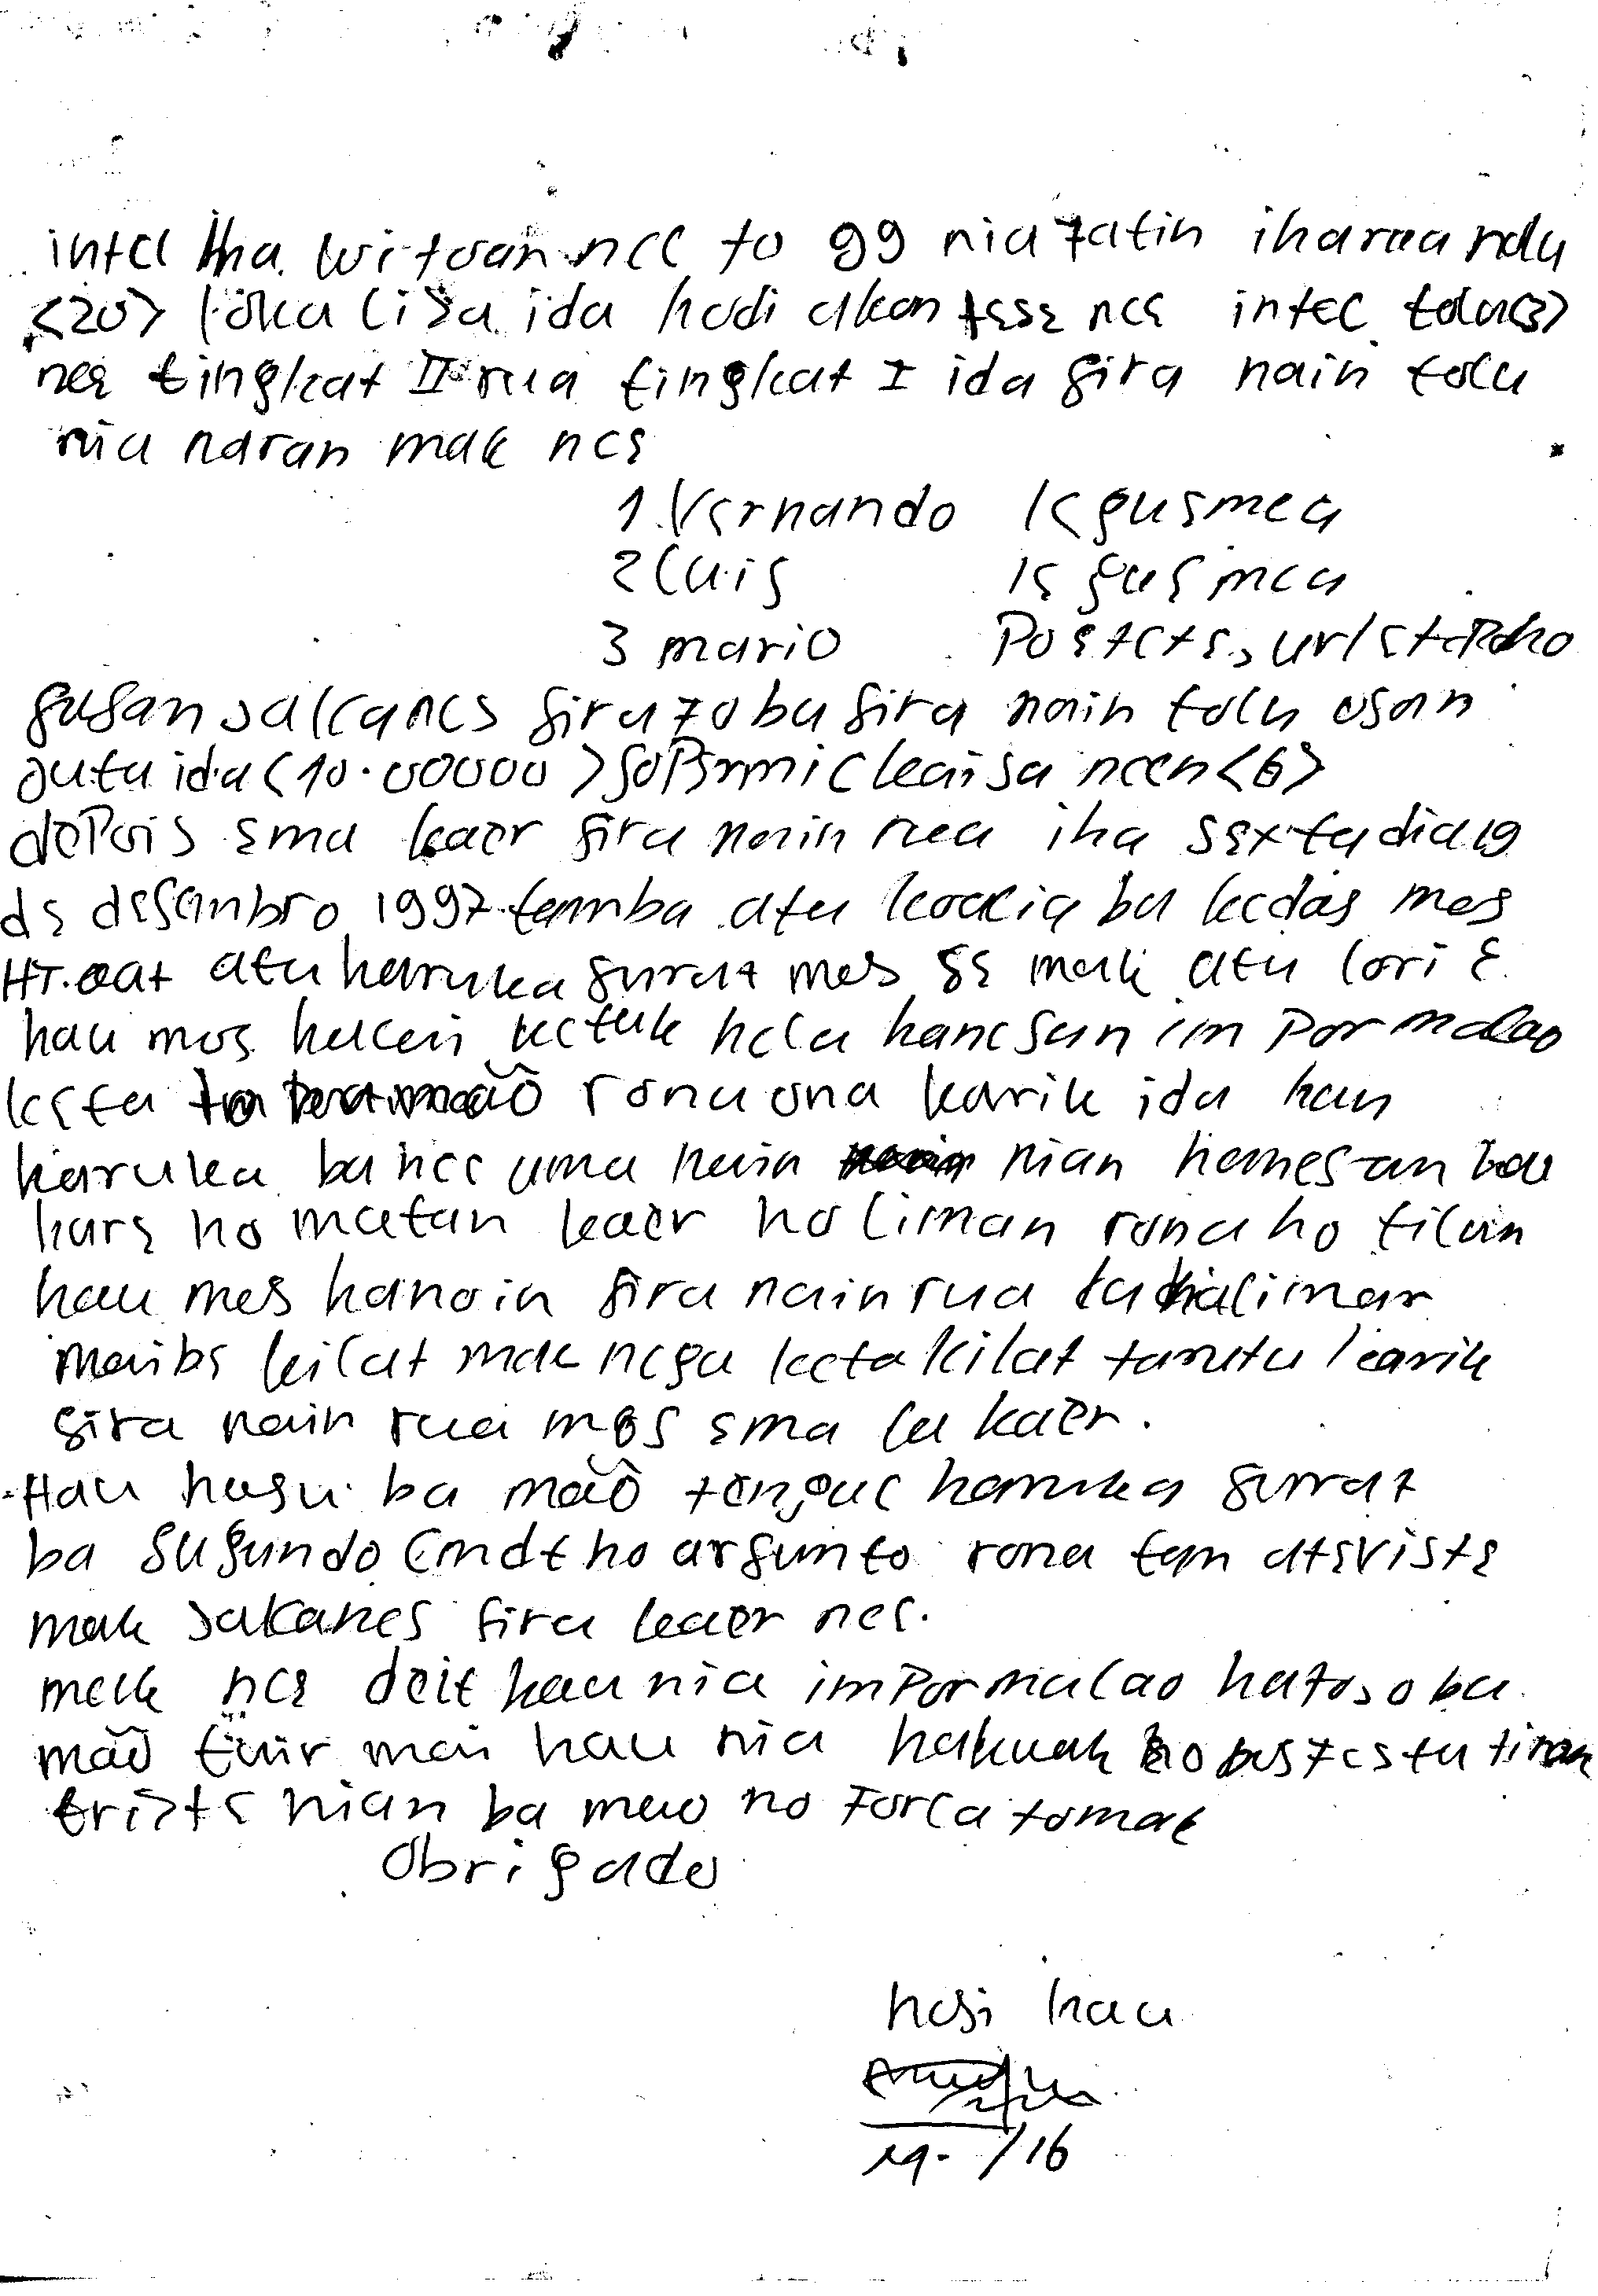 intel iha. Wituan nee to 99 nia fatin iha rua nulu
<20> loka lisa ida hodi akontese nee intel tolu<3>
nee tingkat II rua tingkat I ida sira nain tolu
nia naran mak nee
1. Vernando Ks gusmea
2 Luis Ks gusmea
3 mario
susan salcanes sira fo ba sira nain tolu osan
juta ida <10.00000> sopermi kaisa neen <6>
depois ema kaer sira nain rua iha sexta dia 19
de desenbro 1997 tamba atu koalia ba kedas mos
HT. aat atu haruka surat mos se mak atu lori e.
hau mos hakeri ketuk hela hanesan impormacao
keta mãõ rona ona karik ida hau
haruka ba nee uma nain nian hanesan hau
hare ho matan kaer ho liman rona ho tilun
hau mos hanoin sira nain rua liman
maibe kilat mak nega keta kilat karik
sira nain rua mos ema la kaer.
Hau husu ba mãõ haruka surat
ba sugundo Cmdt ho arsunto rona
mak salcanes sira kaer nee.
mak nee deit hau nia impormacao hatoso ba
mãõ tuir mai hau nia hakuak ho
triste nian ba mao no Forca tomak
Obrigado
hosi hau
19. /16